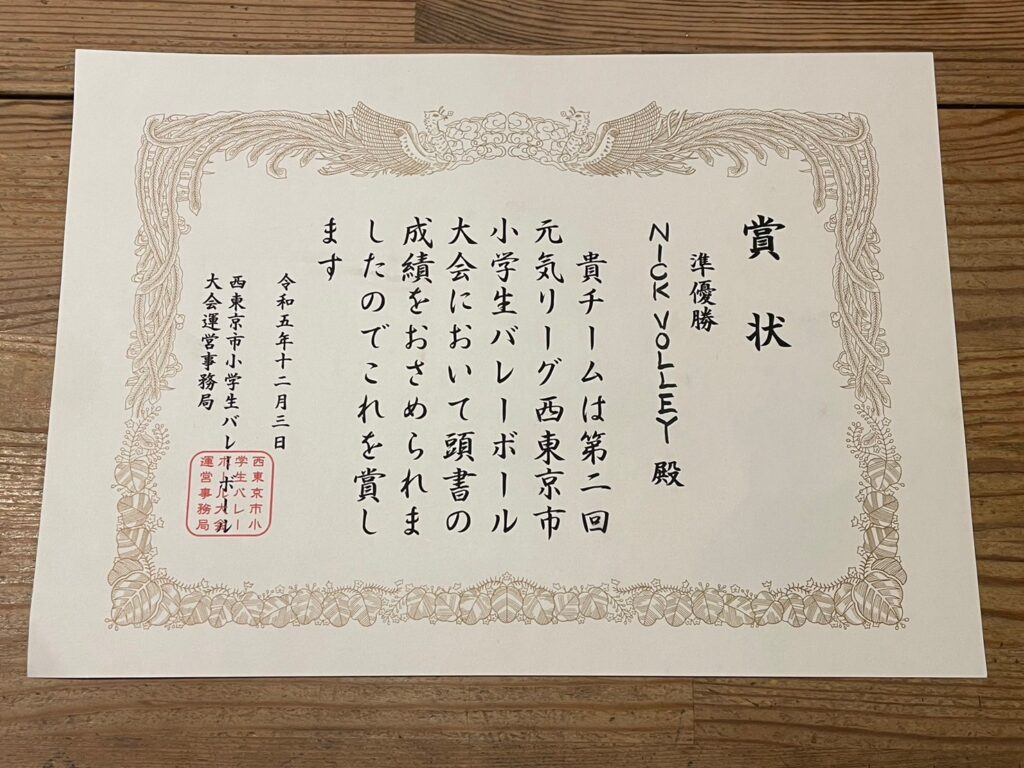 賞状
準優勝
NICK VOLLEY 殿
貴チームは第二回
元気リーグ西東京市
小学生バレーボール
大会において頭書の
成績をおさめられま
したのでこれを賞し
ます
令和五年十二月三日
西東京市小学生バレーボール
大会運営事務局
西東京市小
学生バレー
ボール大会
運営事務局